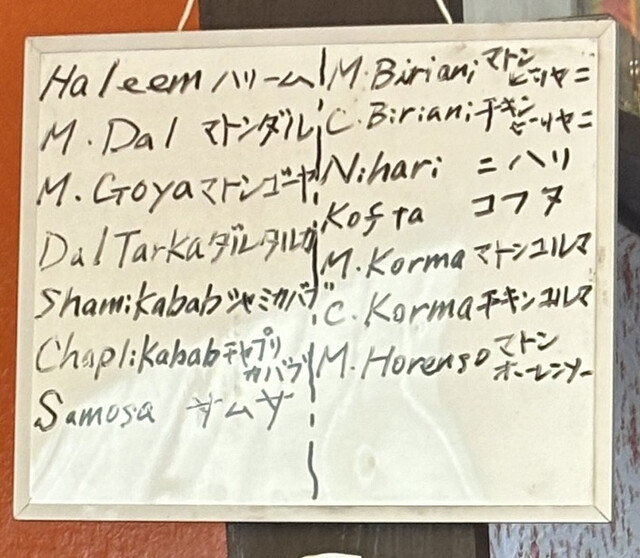 Haleem ハリーム
M. Dal マトンダル
M. Goya マトンゴーヤ
Dal Tarka ダルタルカ
Shami kabab シャミカバブ
Chapli kabab チャプリ
カバブ
Samosa サムサ
M. Biriani マトン
ビリヤニ
C. Biriani チキン
ビーリヤニ
Nihari ニハリ
Kofta コフタ
M. Korma マトンコルマ
C. Korma チキンコルマ
M. Horenso マトン
ホーレンソー